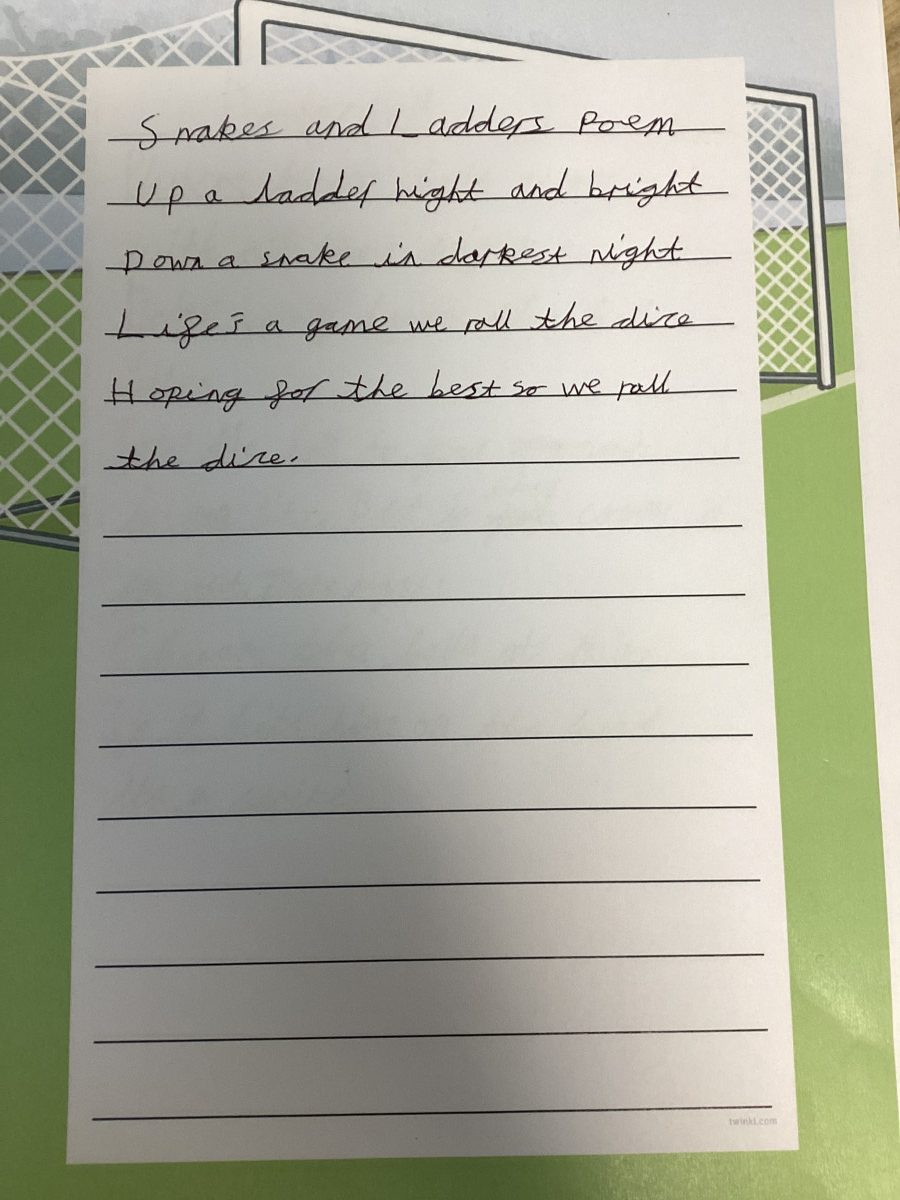 Snakes and Ladders Poem
Up a ladder hight and bright
Down a snake in darkest Night
Life's a game we roll the dice
Hoping for the best so we roll
the dice.
twinkl.com